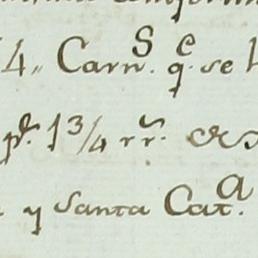 4,, Carn.s q.e se
p.r 1 3/4 rr.s
y Santa Cat.a